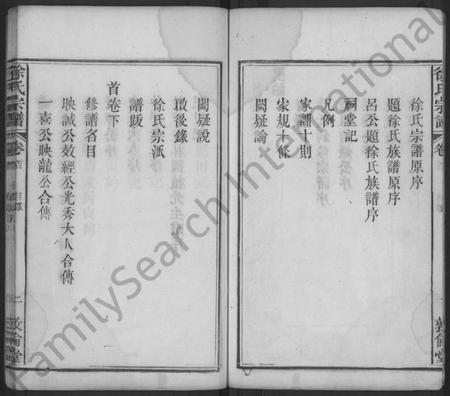 徐氏宗譜
徐氏宗譜原序
題徐氏族譜原序
呂公題徐氏族譜序
祠堂記
凡例
家訓十則
家規十條
闕疑論
敦倫堂
闕疑說
啟後錄
徐氏宗派
譜跋
首卷下
修譜名目
映誠公效經公光秀大人合傳
一喬公映龍公合傳
徐氏宗譜
卷首
目錄
二
敦倫堂
FamilySearch International